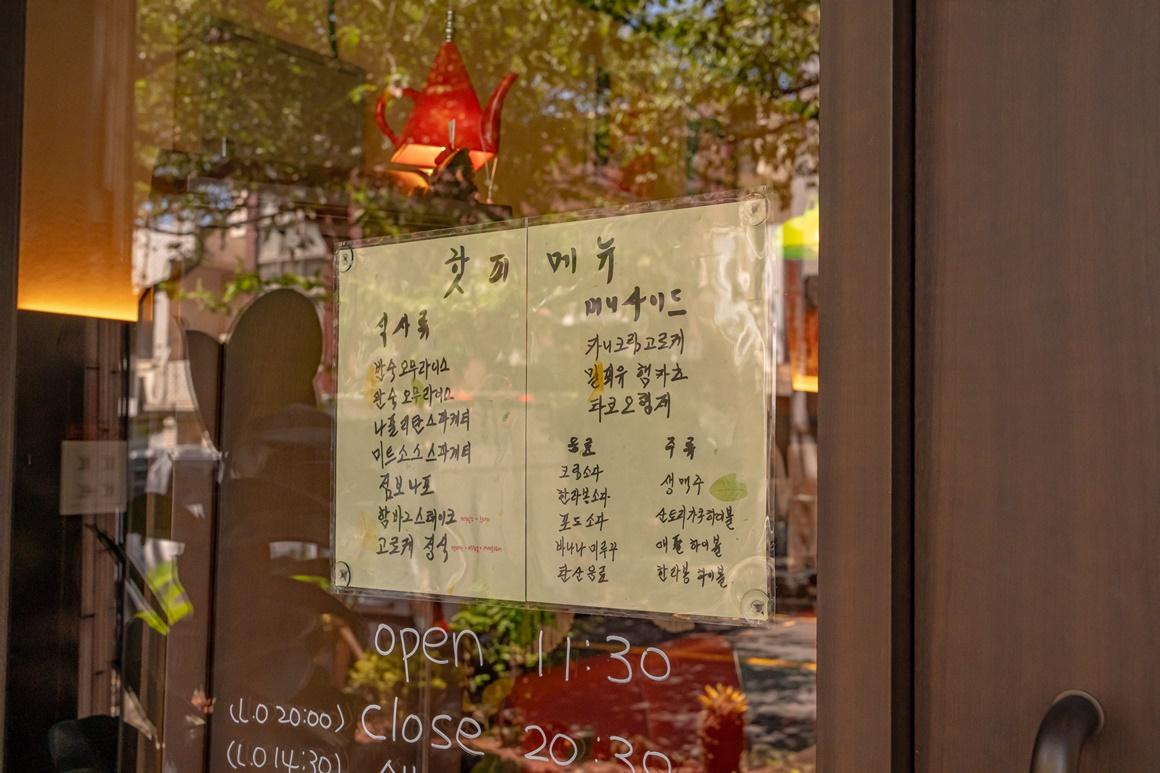 핫피 메뉴
식사류
반숙오무라이스
완숙오무라이스
나폴리탄스파게티
미트소스스파게티
점보나포
함바그스테이크
고로케 정식
미니사이드
카니크림고로케
밀푀유 햄카츠
타코오형제
음료
크림소다
한라봉소다
포도소다
바나나미루꾸
탄산음료
주류
생맥주
산토리가쿠하이볼
애플하이볼
한라봉 하이볼
open 11:30
(L.O 20:00) close 20:30
(L.O 14:30)